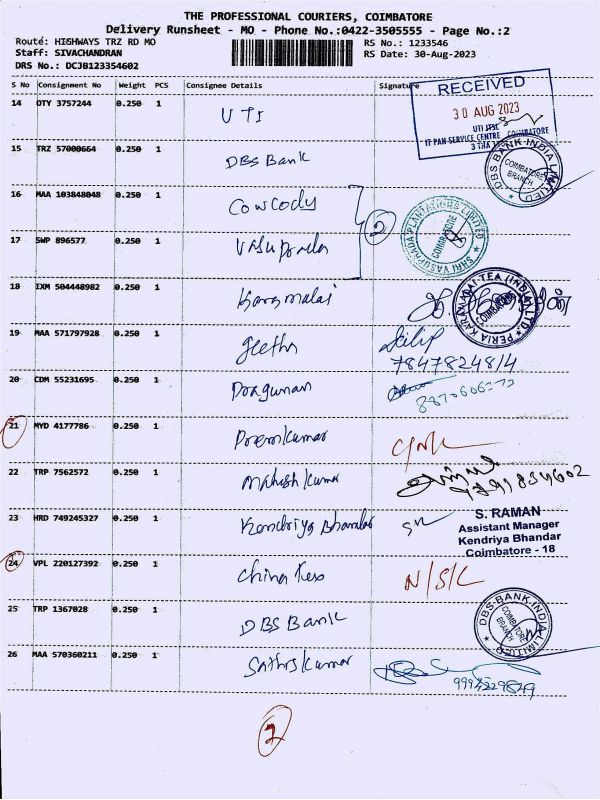 THE PROFESSIONAL COURIERS, COIMBATORE
Delivery Runsheet - MO - Phone No.:0422-3505555 - Page No.:2
Route: HIGHWAYS TRZ RD MO RS No.: 1233546
Staff: SIVACHANDRAN RS Date: 30-Aug-2023
DRS No.: DCJB123354602
S No Consignment No Weight PCS Consignee Details Signature
14 OTY 3757244 0.250 1 UTI
RECEIVED
30 AUG 2023
UTI ITSL
IT PAN SERVICE CENTRE COIMBATORE
15 TRZ 57000664 0.250 1 DBS Bank
DBS BANK INDIA LIMITED
COIMBATORE
BRANCH
16 MAA 103848048 0.250 1 Cowcody
2
SHRI VASUPRADA PLANTATIONS LIMITED
COIMBATORE
17 SWP 896577 0.250 1 Vasuprada
18 IXM 504448982 0.250 1 Karamalai
PERIA KARAMALAI TEA (INDIA) LTD
COIMBATORE
19 MAA 571797928 0.250 1 Geetha Dilip
7847824814
20 CDM 55231695 0.250 1 Pragunan
21 MYD 4177786 0.250 1 Premkumar
22 TRP 7562572 0.250 1 Mahesh Kumar
23 HRD 749245327 0.250 1 Kendriya Bhandar
S. RAMAN
Assistant Manager
Kendriya Bhandar
Coimbatore - 18
24 VPL 220127392 0.250 1 China N/S/L
25 TRP 1367028 0.250 1 DBS Bank
DBS BANK INDIA LIMITED
COIMBATORE
BRANCH
26 MAA 570360211 0.250 1 Sathis Kumar
9994229849
2